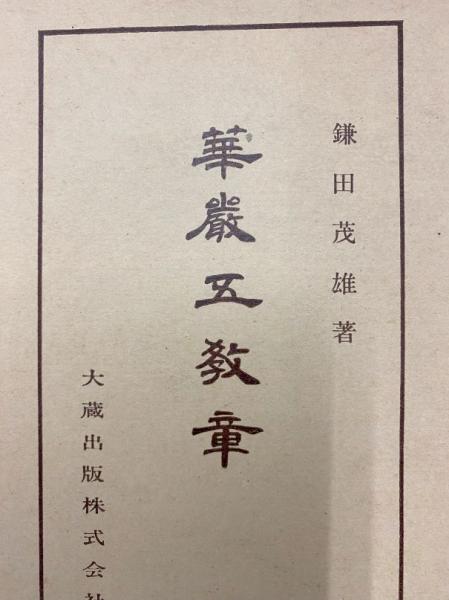 鎌田茂雄著
華嚴五教章
大蔵出版株式会社